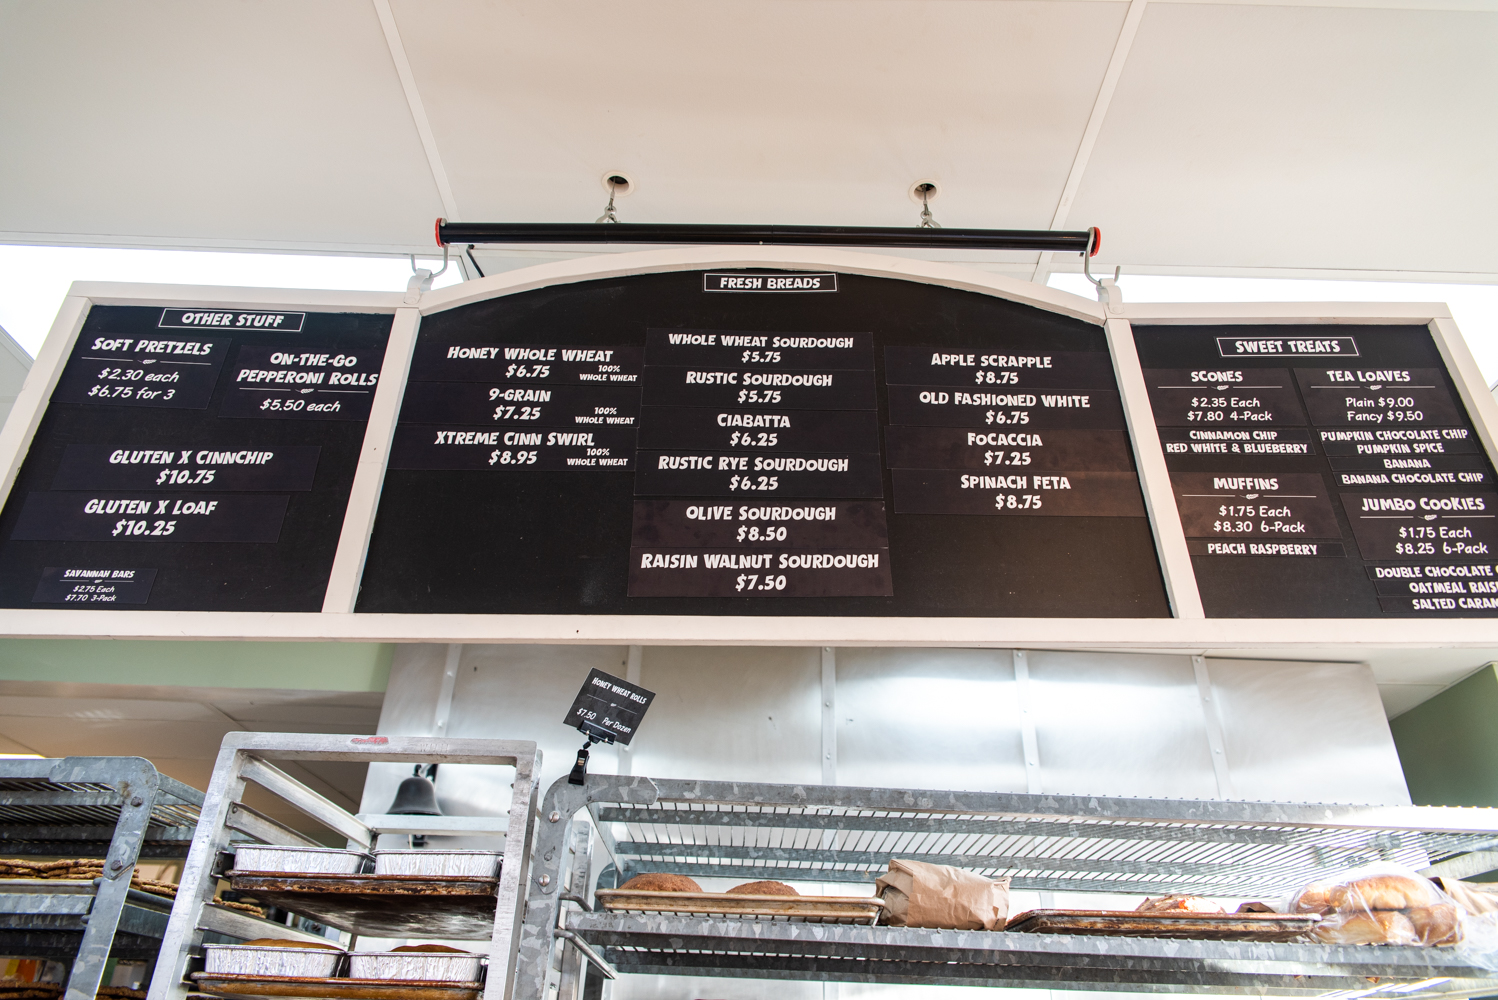 OTHER STUFF
SOFT PRETZELS
$2.30 each
$6.75 for 3
ON-THE-GO
PEPPERONI ROLLS
$5.50 each
GLUTEN X CINNCHIP
$10.75
GLUTEN X LOAF
$10.25
SAVANNAH BARS
$2.75 Each
$7.70 3-Pack
FRESH BREADS
HONEY WHOLE WHEAT
$6.75
100%
WHOLE WHEAT
9-GRAIN
$7.25
100%
WHOLE WHEAT
XTREME CINN SWIRL
$8.95
100%
WHOLE WHEAT
WHOLE WHEAT SOURDOUGH
$5.75
RUSTIC SOURDOUGH
$5.75
CIABATTA
$6.25
RUSTIC RYE SOURDOUGH
$6.25
OLIVE SOURDOUGH
$8.50
RAISIN WALNUT SOURDOUGH
$7.50
APPLE SCRAPPLE
$8.75
OLD FASHIONED WHITE
$6.75
FOCACCIA
$7.25
SPINACH FETA
$8.75
SWEET TREATS
SCONES
$2.35 Each
$7.80 4-Pack
CINNAMON CHIP
RED WHITE & BLUEBERRY
MUFFINS
$1.75 Each
$8.30 6-Pack
PEACH RASPBERRY
TEA LOAVES
Plain $9.00
Fancy $9.50
PUMPKIN CHOCOLATE CHIP
PUMPKIN SPICE
BANANA
BANANA CHOCOLATE CHIP
JUMBO COOKIES
$1.75 Each
$8.25 6-Pack
DOUBLE CHOCOLATE
OATMEAL
SALTED
HONEY WHEAT ROLLS
$7.50 Per Dozen